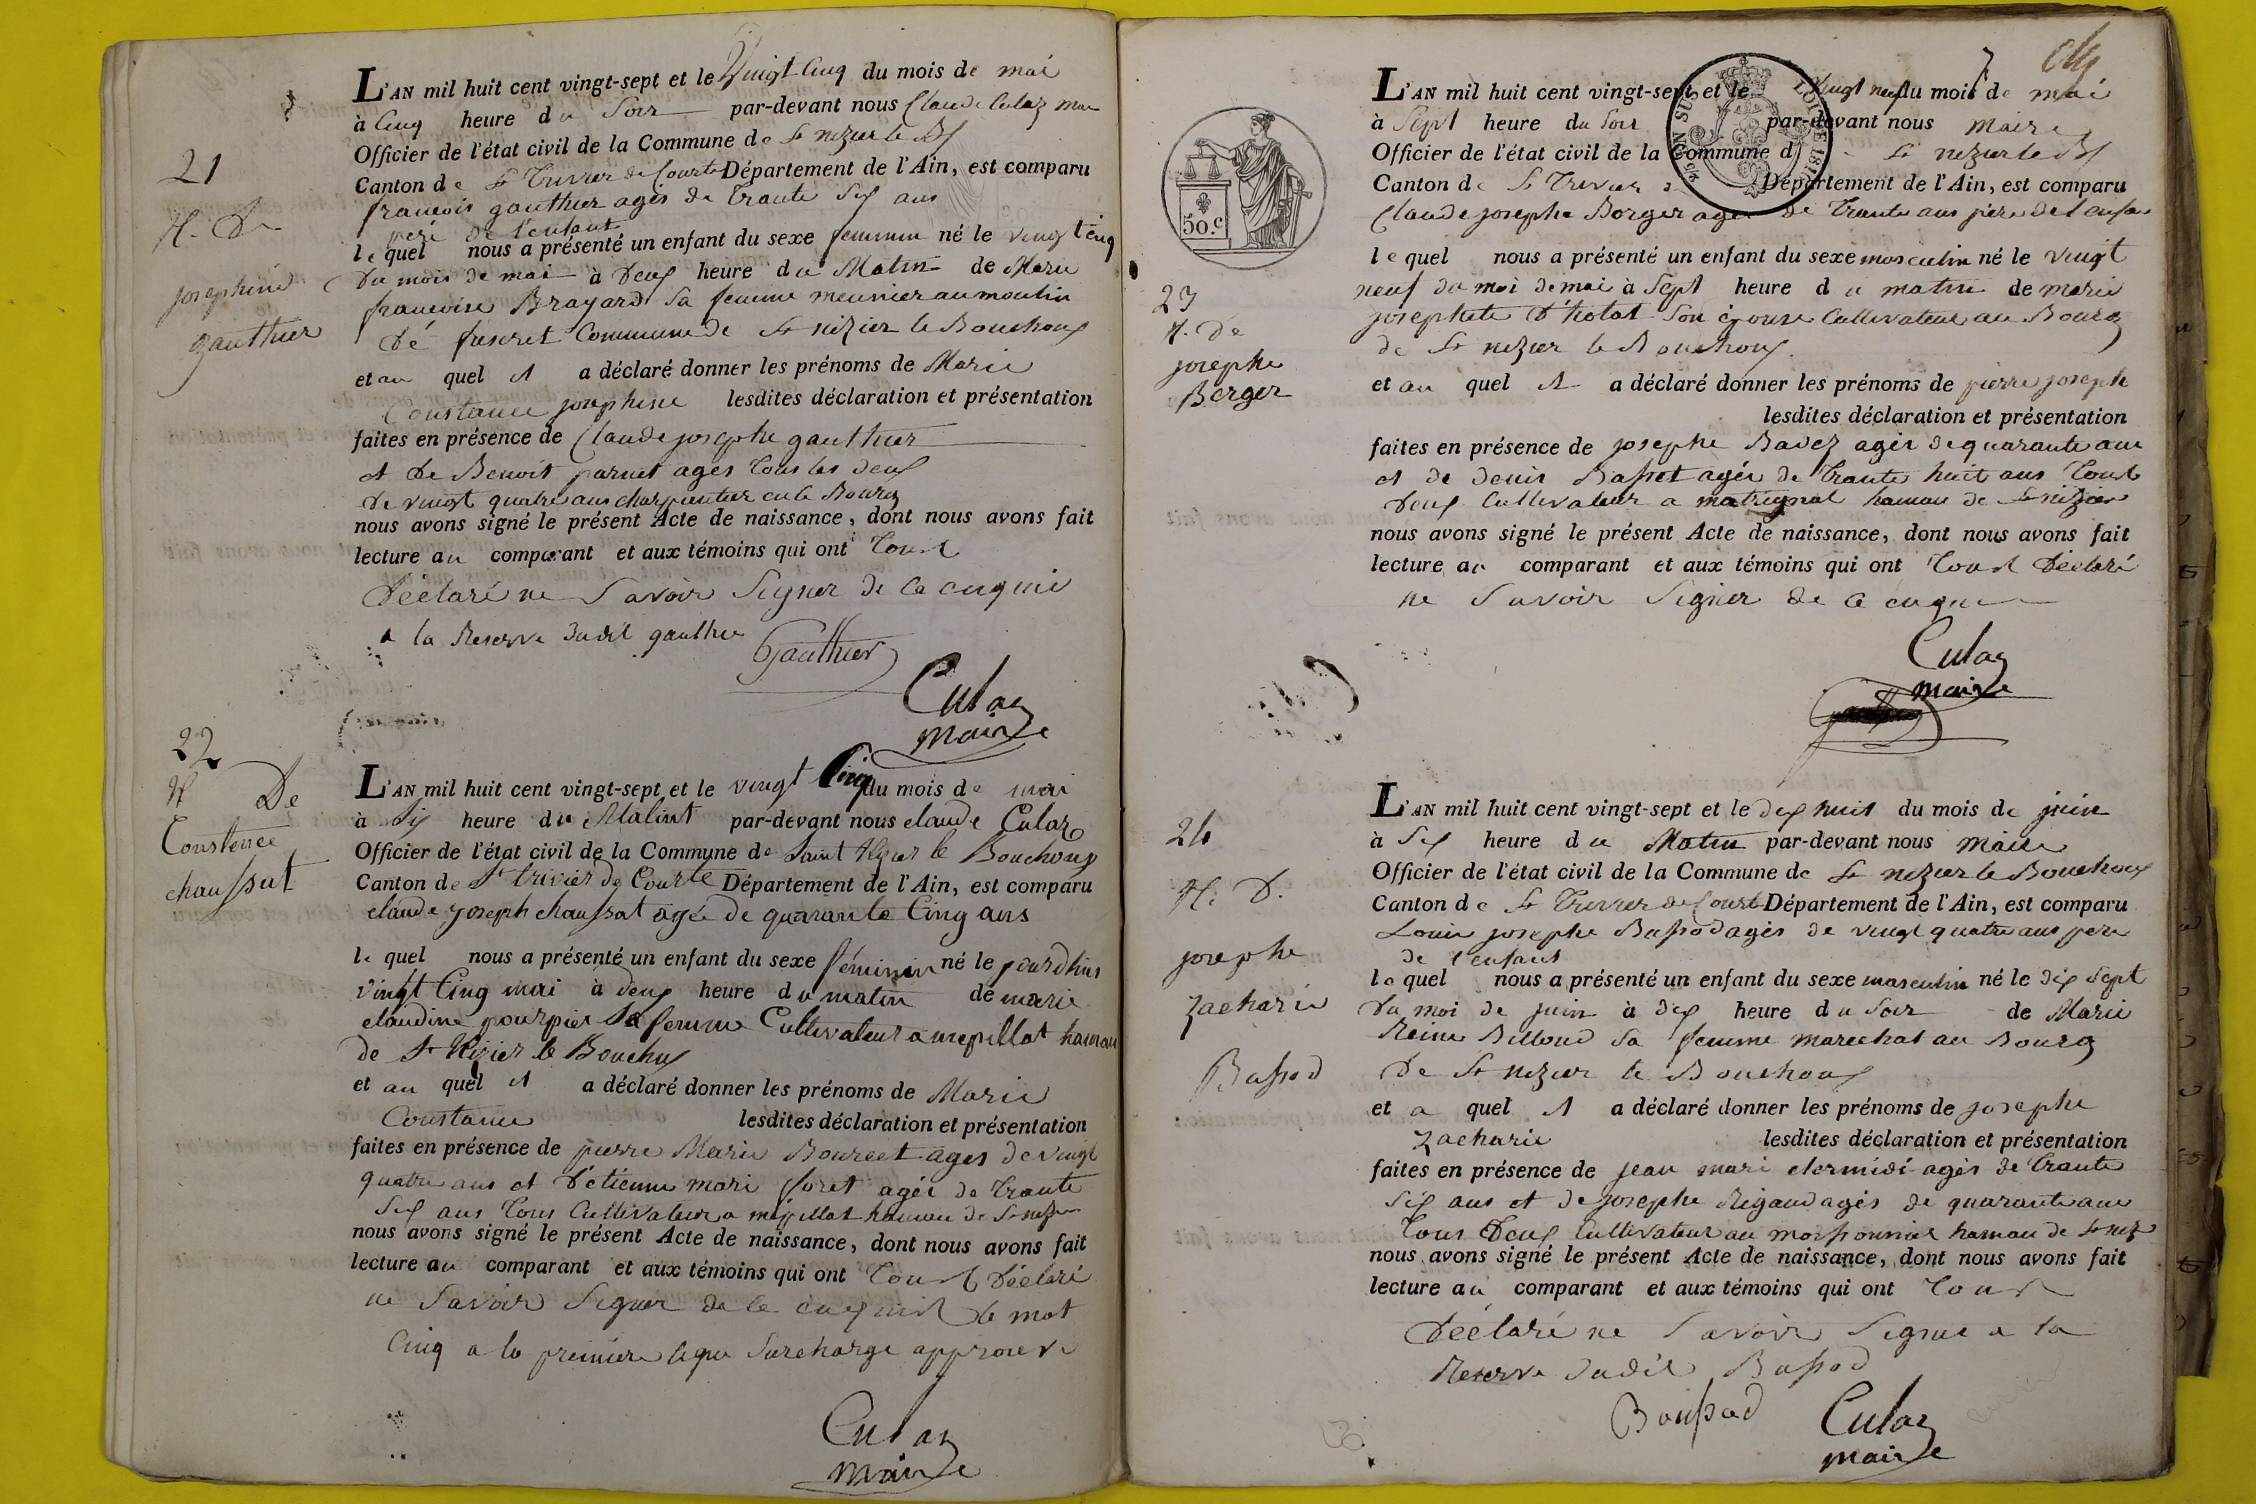 21
N. De
josephine
gauthier
L'AN mil huit cent vingt-sept et le Vingt Cinq du mois de mai
à Cinq heure du Soir par-devant nous Claude Culaz
Officier de l'état civil de la Commune de St nizier le
Canton de St Trivier de Courte Département de l'Ain, est comparu
francois gauthier agés de trante Six ans
père de l'enfant
lequel nous a présenté un enfant du sexe feminin né le vingt cinq
du mois de mai à deux heure du Matin de Marie
francoise Brayard Sa femme meunier au moulin
Dé Commune de St nizier le Bouchoux
et au quel il a déclaré donner les prénoms de Marie
Constance josephine lesdites déclaration et présentation
faites en présence de Claude josephe gauthier
et De Benoit agés tous les deux
de vingt quatre ans charpentier en le Bourg
nous avons signé le présent Acte de naissance, dont nous avons fait
lecture au comparant et aux témoins qui ont tous
Déclaré ne Savoir Signer de ce enquis
a la Reserve dudit gauthier
Gauthier
Culaz
maire
22
N De
Constence
chaussat
L'AN mil huit cent vingt-sept et le vingt Cinq du mois de mai
à Six heure du Matint par-devant nous claude Culaz
Officier de l'état civil de la Commune de Saint Nizier le Bouchoux
Canton de St trivier de Courte Département de l'Ain, est comparu
claude joseph chaussat agée de quarante Cinq ans
le quel nous a présenté un enfant du sexe féminin né le jourdhui
vingt Cinq mai à deux heure du matin de marie
claudine pourpier Sa femme Cultivateur a mepillat hamau
de St Nizier le Bouchux
et au quel il a déclaré donner les prénoms de Marie
Constance lesdites déclaration et présentation
faites en présence de pierre Marie Bourcet ages de vingt
quatre ans et D'étienne mari foret agée de trante
Six ans tous Cultivateur a mépillat hamau de St nizier
nous avons signé le présent Acte de naissance, dont nous avons fait
lecture au comparant et aux témoins qui ont tous Déclaré
ne Savoir Signer de ce enquis le mot
Cinq a la première ligne Surcharge approuvé
Culaz
maire
7
50.c
23
N. De
josephe
Berger
L'AN mil huit cent vingt-sept et le Vingt neuf du mois de mai
à Sept heure du Soir par-devant nous maire
Officier de l'état civil de la Commune d St nizier le
Canton de St Trevier Département de l'Ain, est comparu
Claude josephe Berger agés de trante ans père de l'enfan
lequel nous a présenté un enfant du sexe masculin né le vingt
neuf du moi de mai à Sept heure du matin de marie
josephete Son épouse Cultivateur au Bourg
de St nizier le Bouchoux
et au quel il a déclaré donner les prénoms de pierre joseph
lesdites déclaration et présentation
faites en présence de josephe Badez agés de quarante ans
et de denis Basset agée de trante huit ans tous
deux Cultivateur a matrignat hamau de St nizier
nous avons signé le présent Acte de naissance, dont nous avons fait
lecture au comparant et aux témoins qui ont tous Déclaré
ne Savoir Signer de ce enquis
Culaz
maire
24
N. D.
josephe
zacharie
Bassod
L'AN mil huit cent vingt-sept et le dix huit du mois de juin
à Six heure du Matin par-devant nous Maire
Officier de l'état civil de la Commune de St nizier le Bouchoux
Canton de St Trivier de Courte Département de l'Ain, est comparu
Louis josephe Bassod agés de vingt quatre ans père
de l'enfant
lequel nous a présenté un enfant du sexe masculin né le dix Sept
du moi de juin à dix heure du Soir de Marie
Reine Billoud Sa femme marechal au Bourg
De St nizier le Bouchoux
et a quel il a déclaré donner les prénoms de josephe
zacharie lesdites déclaration et présentation
faites en présence de jean mari clermidi agés de trante
Six ans et de josephe Rigaud agés de quarante ans
tous Deux Cultivateur au hamau de St niz
nous avons signé le présent Acte de naissance, dont nous avons fait
lecture au comparant et aux témoins qui ont tous
Déclaré ne Savoir Signer a la
Reserve dudit Bassod
Boussad
Culaz
maire